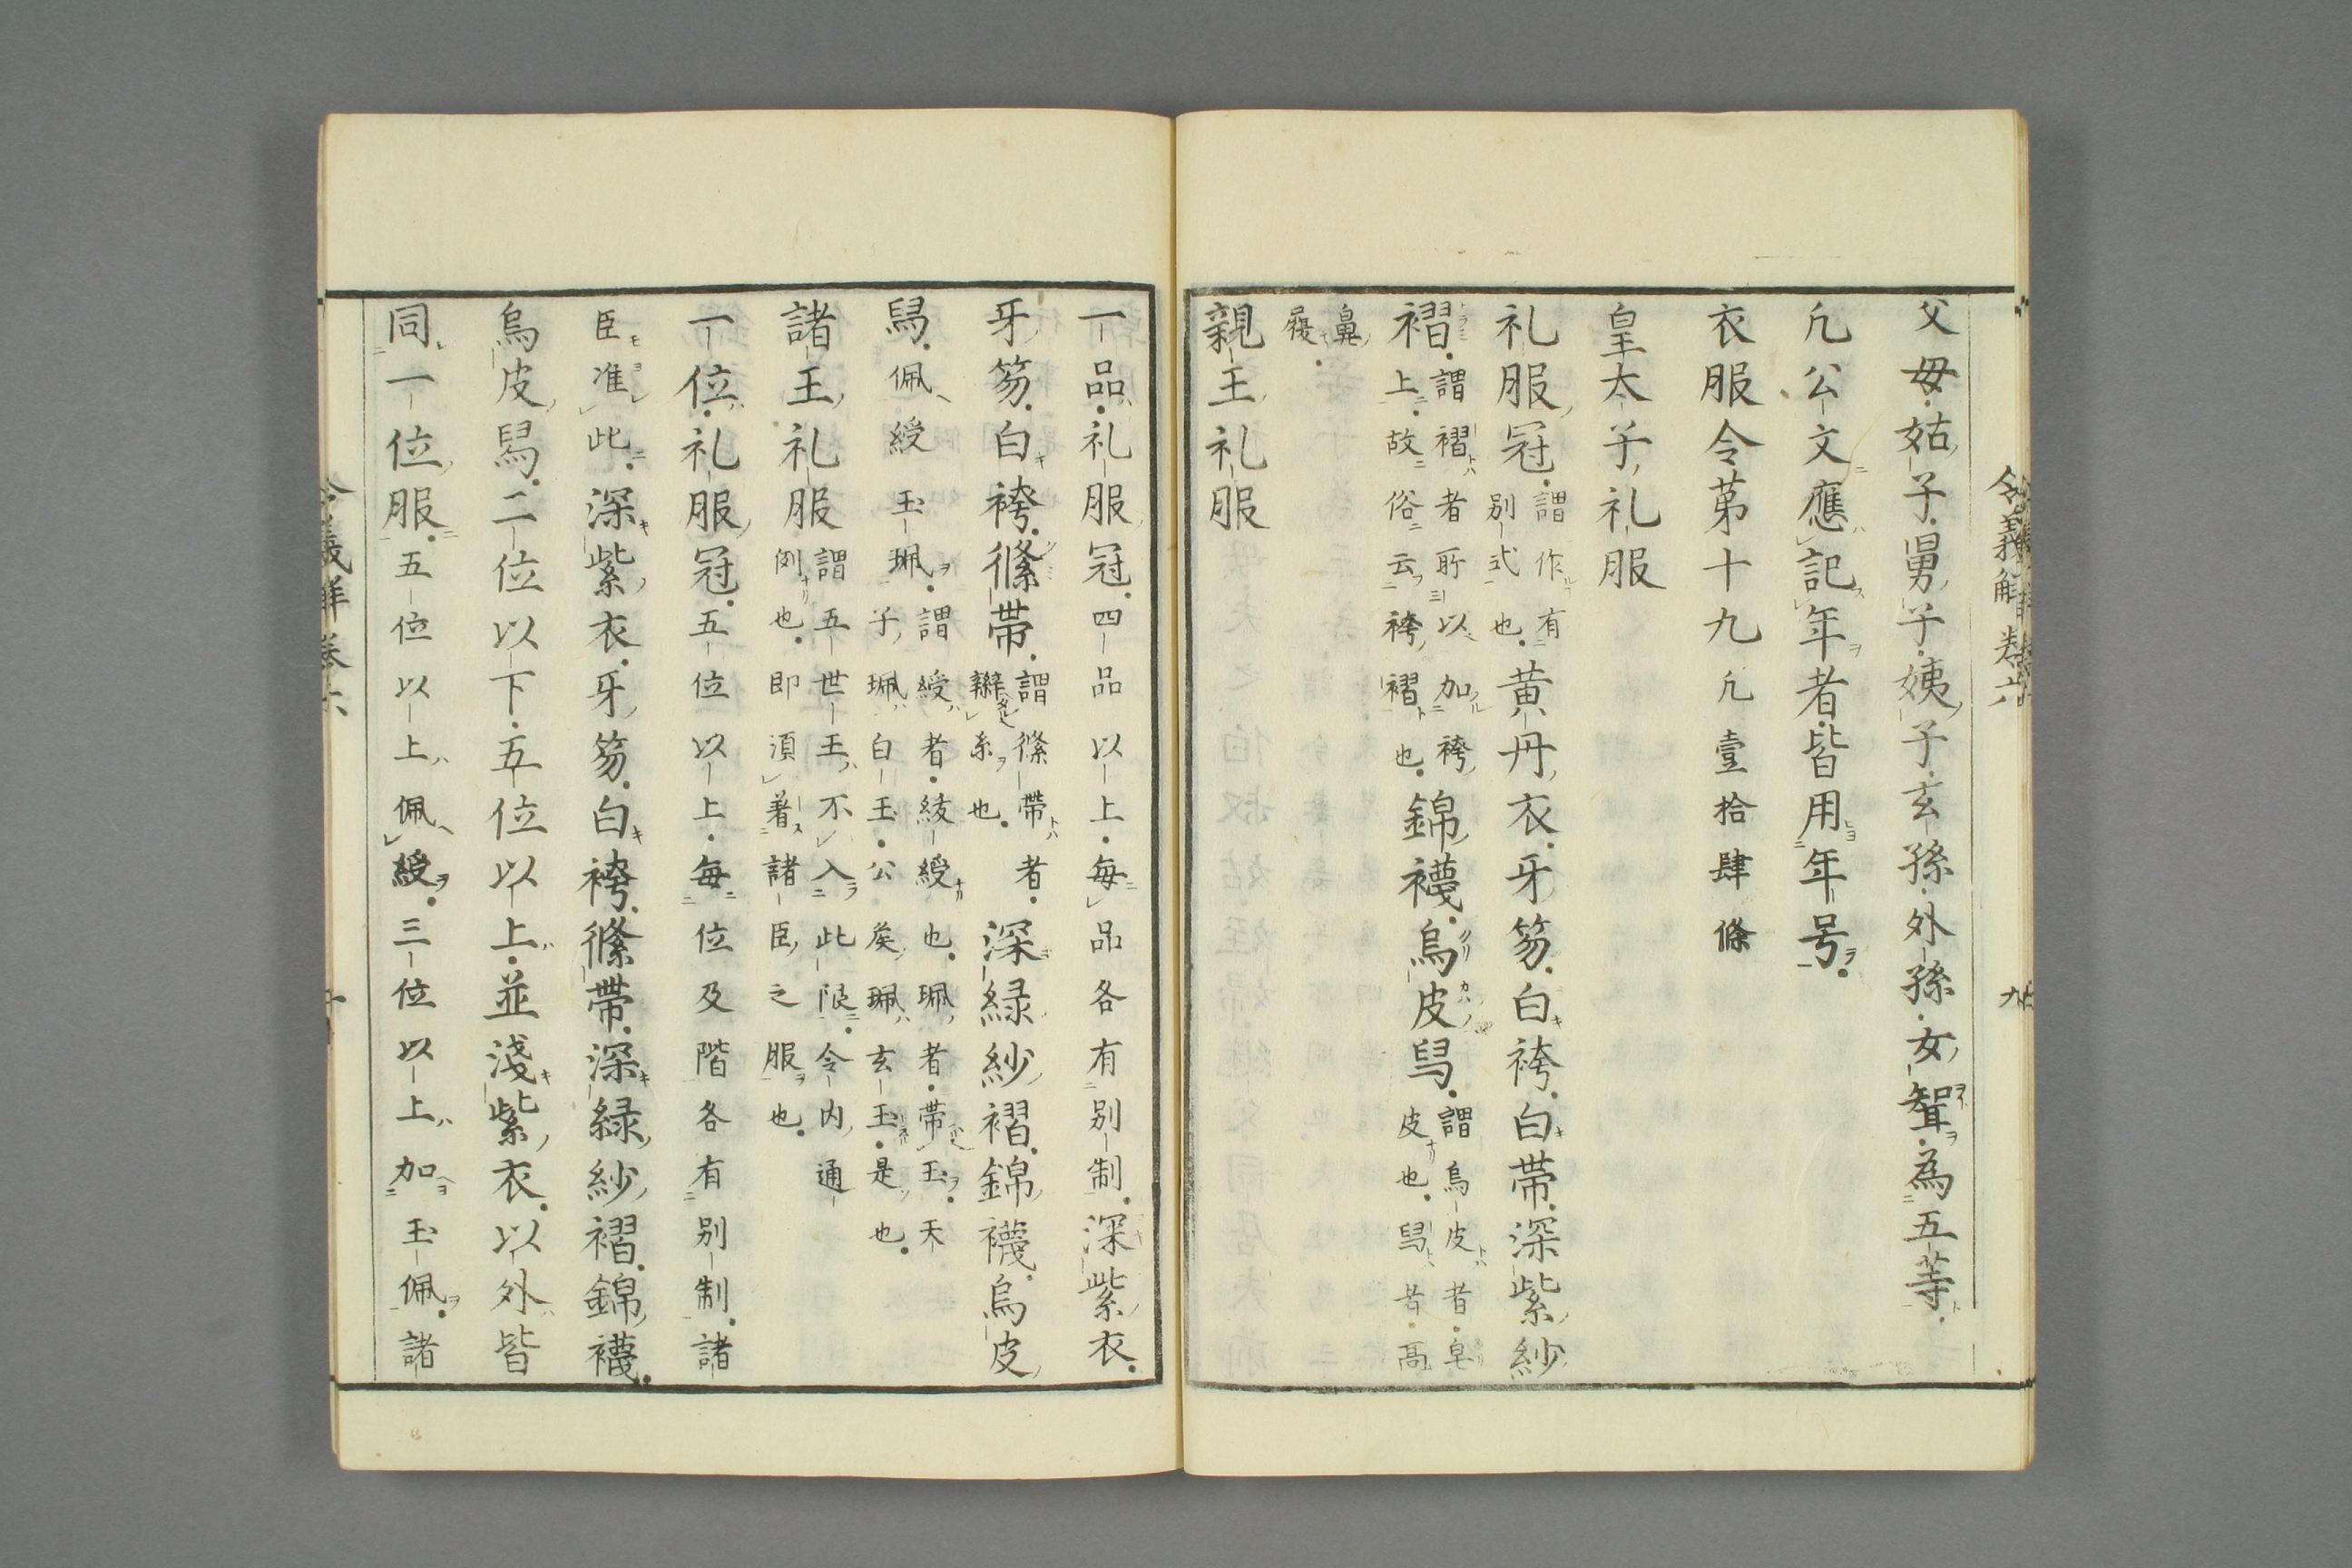 父母姑子舅子姨子玄孫外孫女聟為五等
凢公文應記年者皆用年号
衣服令第十九凢壹拾肆條
皇太子礼服
礼服冠謂作有
別式也黄丹衣牙笏白袴白帯深紫紗
褶謂褶者所以加袴
上故俗云袴褶也錦襪烏皮舃謂烏皮者皂
皮也舃者高
鼻
履
親王礼服
一品礼服冠四品以上毎品各有別制深紫衣
牙笏白袴絛帯謂絛帯者
辮糸也深緑紗褶錦襪烏皮
舃佩綬玉珮謂綬者綾綬也珮者帯玉天
子珮白玉公矦珮玄玉是也
諸王礼服謂五世王不入此限令内通
例也即湏著諸臣之服也
一位礼服冠五位以上毎位及階各有別制諸
臣准此深紫衣牙笏白袴絛帯深緑紗褶錦襪
烏皮舃二位以下五位以上並淺紫衣以外皆
同一位服五位以上佩綬三位以上加玉佩諸